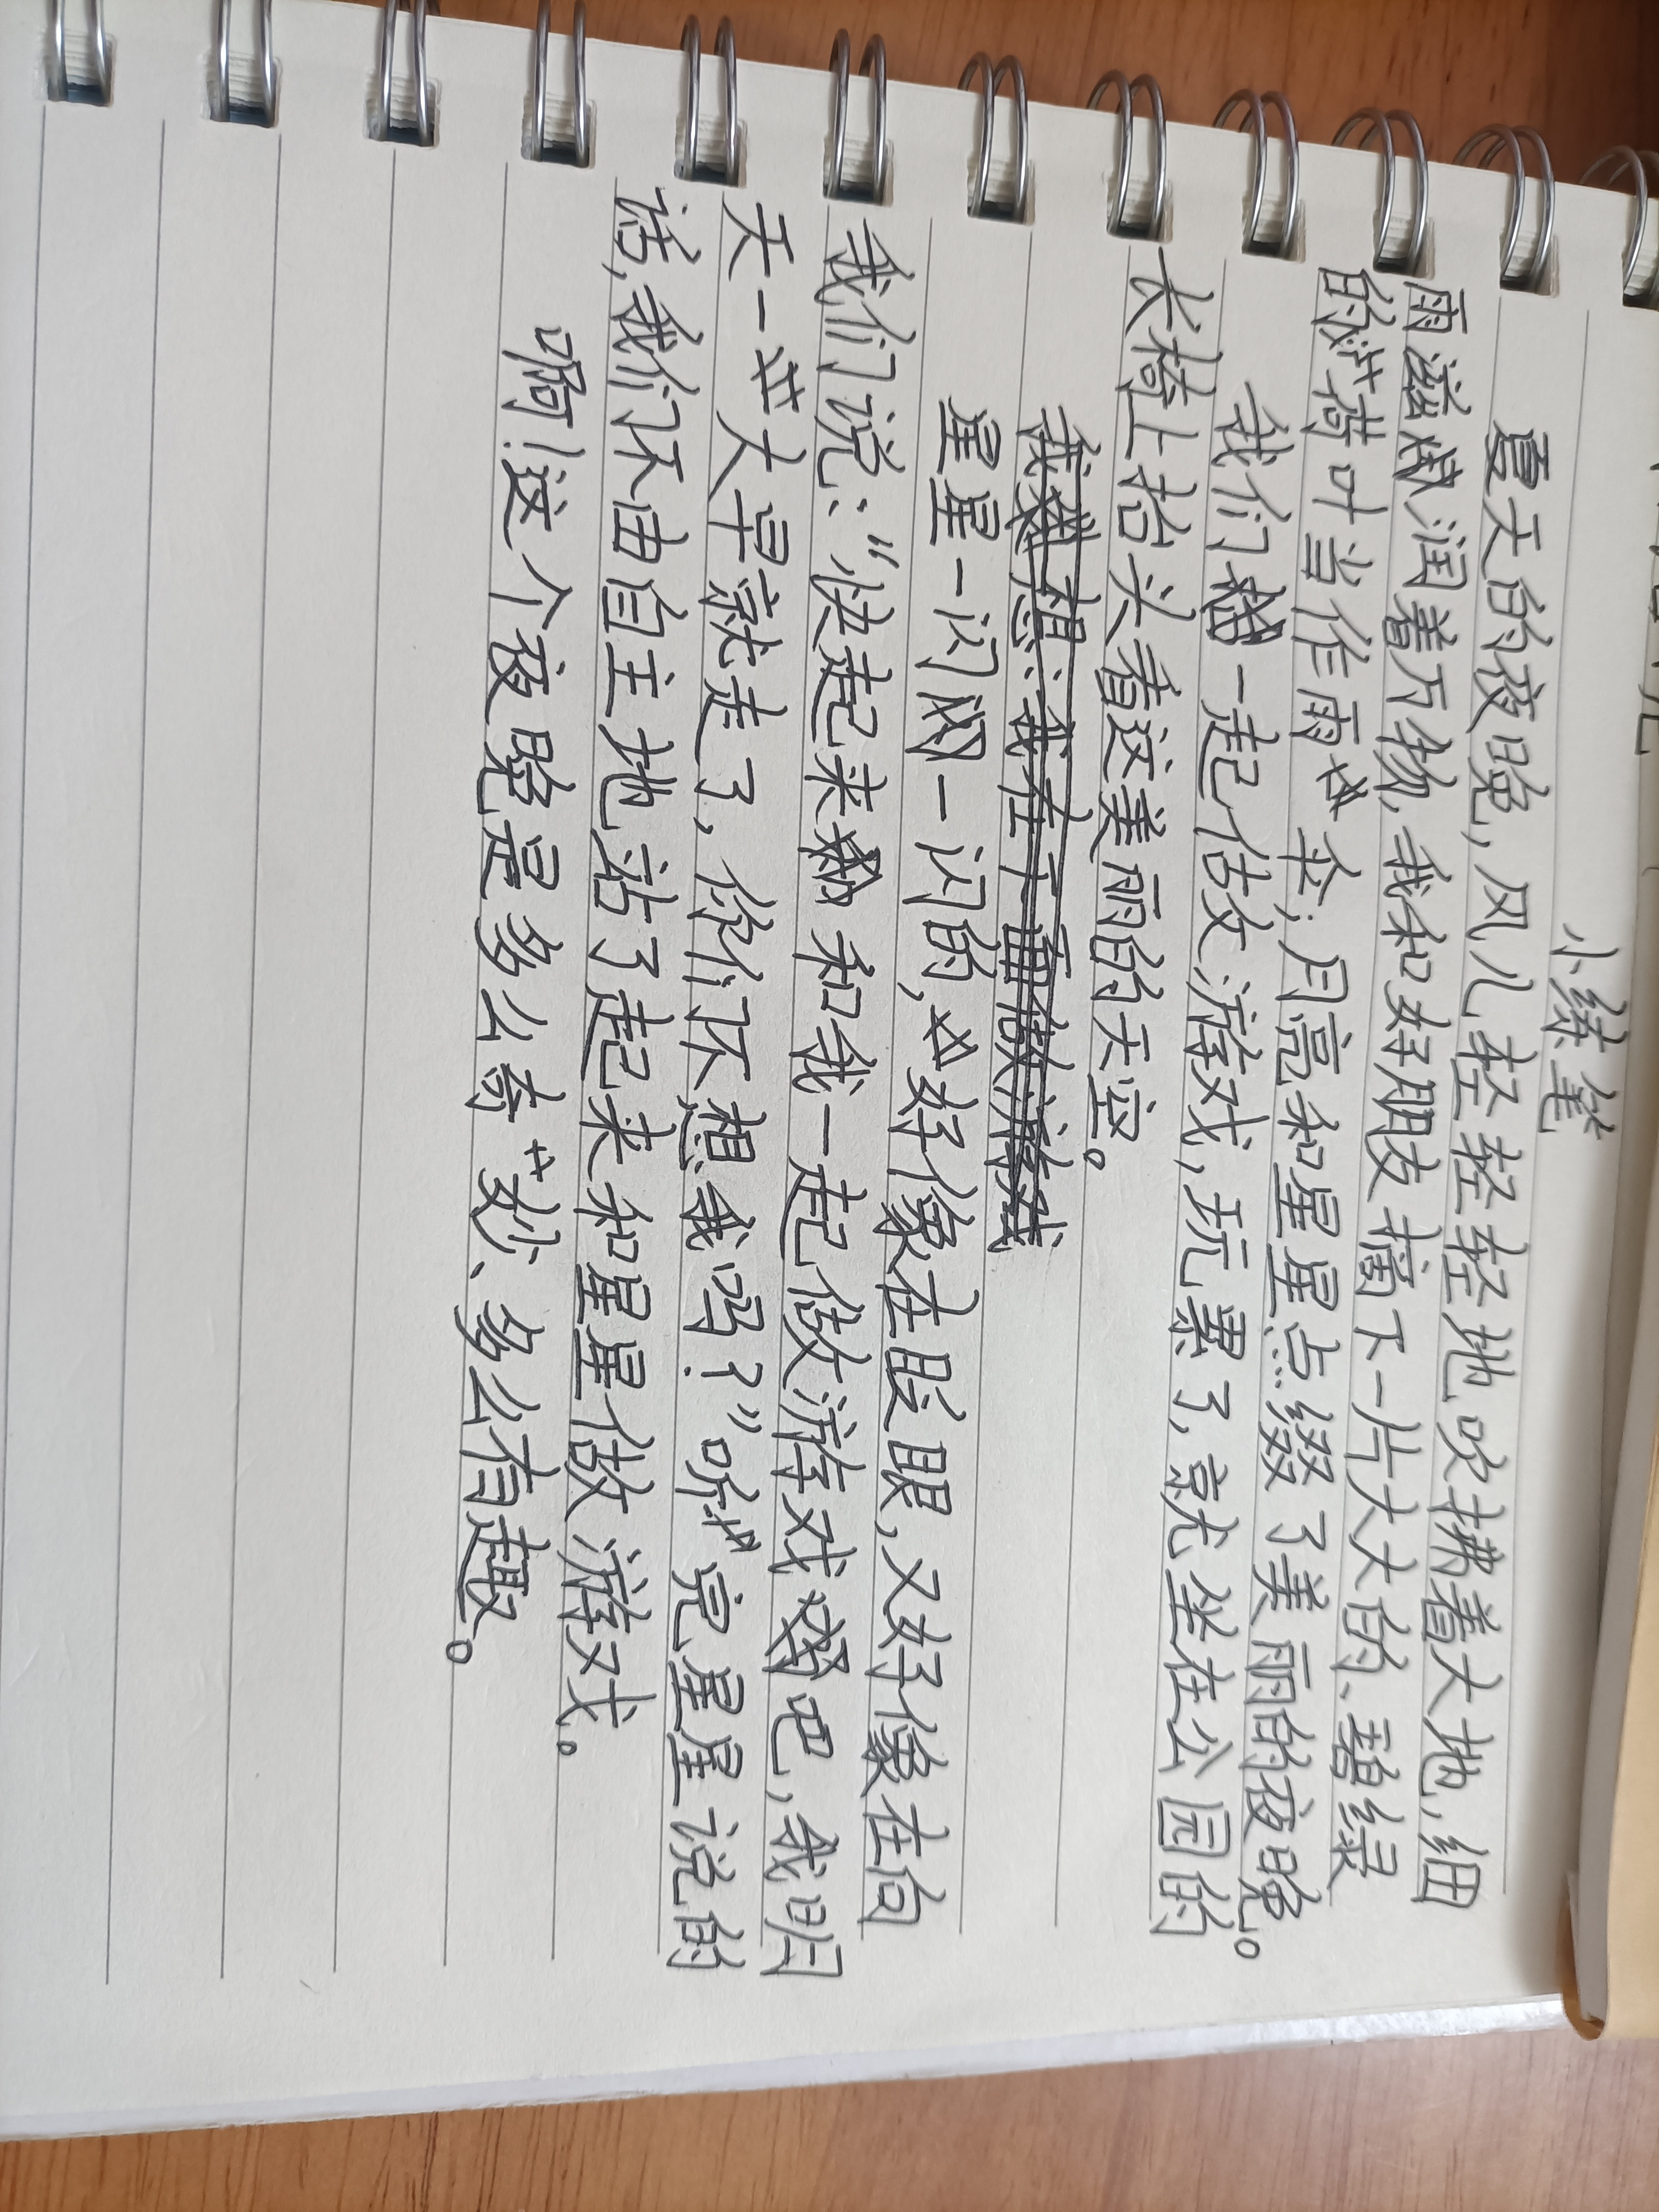 小练笔
夏天的夜晚，风儿轻轻轻轻地吹拂着大地，细
雨滋润着万物，我和好朋友摘下一片大大的、碧绿
的荷叶当作雨伞；月亮和星星点缀了美丽的夜晚。
我们一起估文游戏，玩累了，就坐在公园的
长椅上抬头看这美丽的天空。
想：我在下面做游戏
星星一闪一闪的，好像在眨眼，又好像在向
我们说：“快起来和我一起做游戏吧，我明
天一大早就走了，你们不想我吗？”听完星星说的
话，我们不由自主地站了起来和星星做游戏。
啊！这个夜晚是多么奇妙、多么有趣。